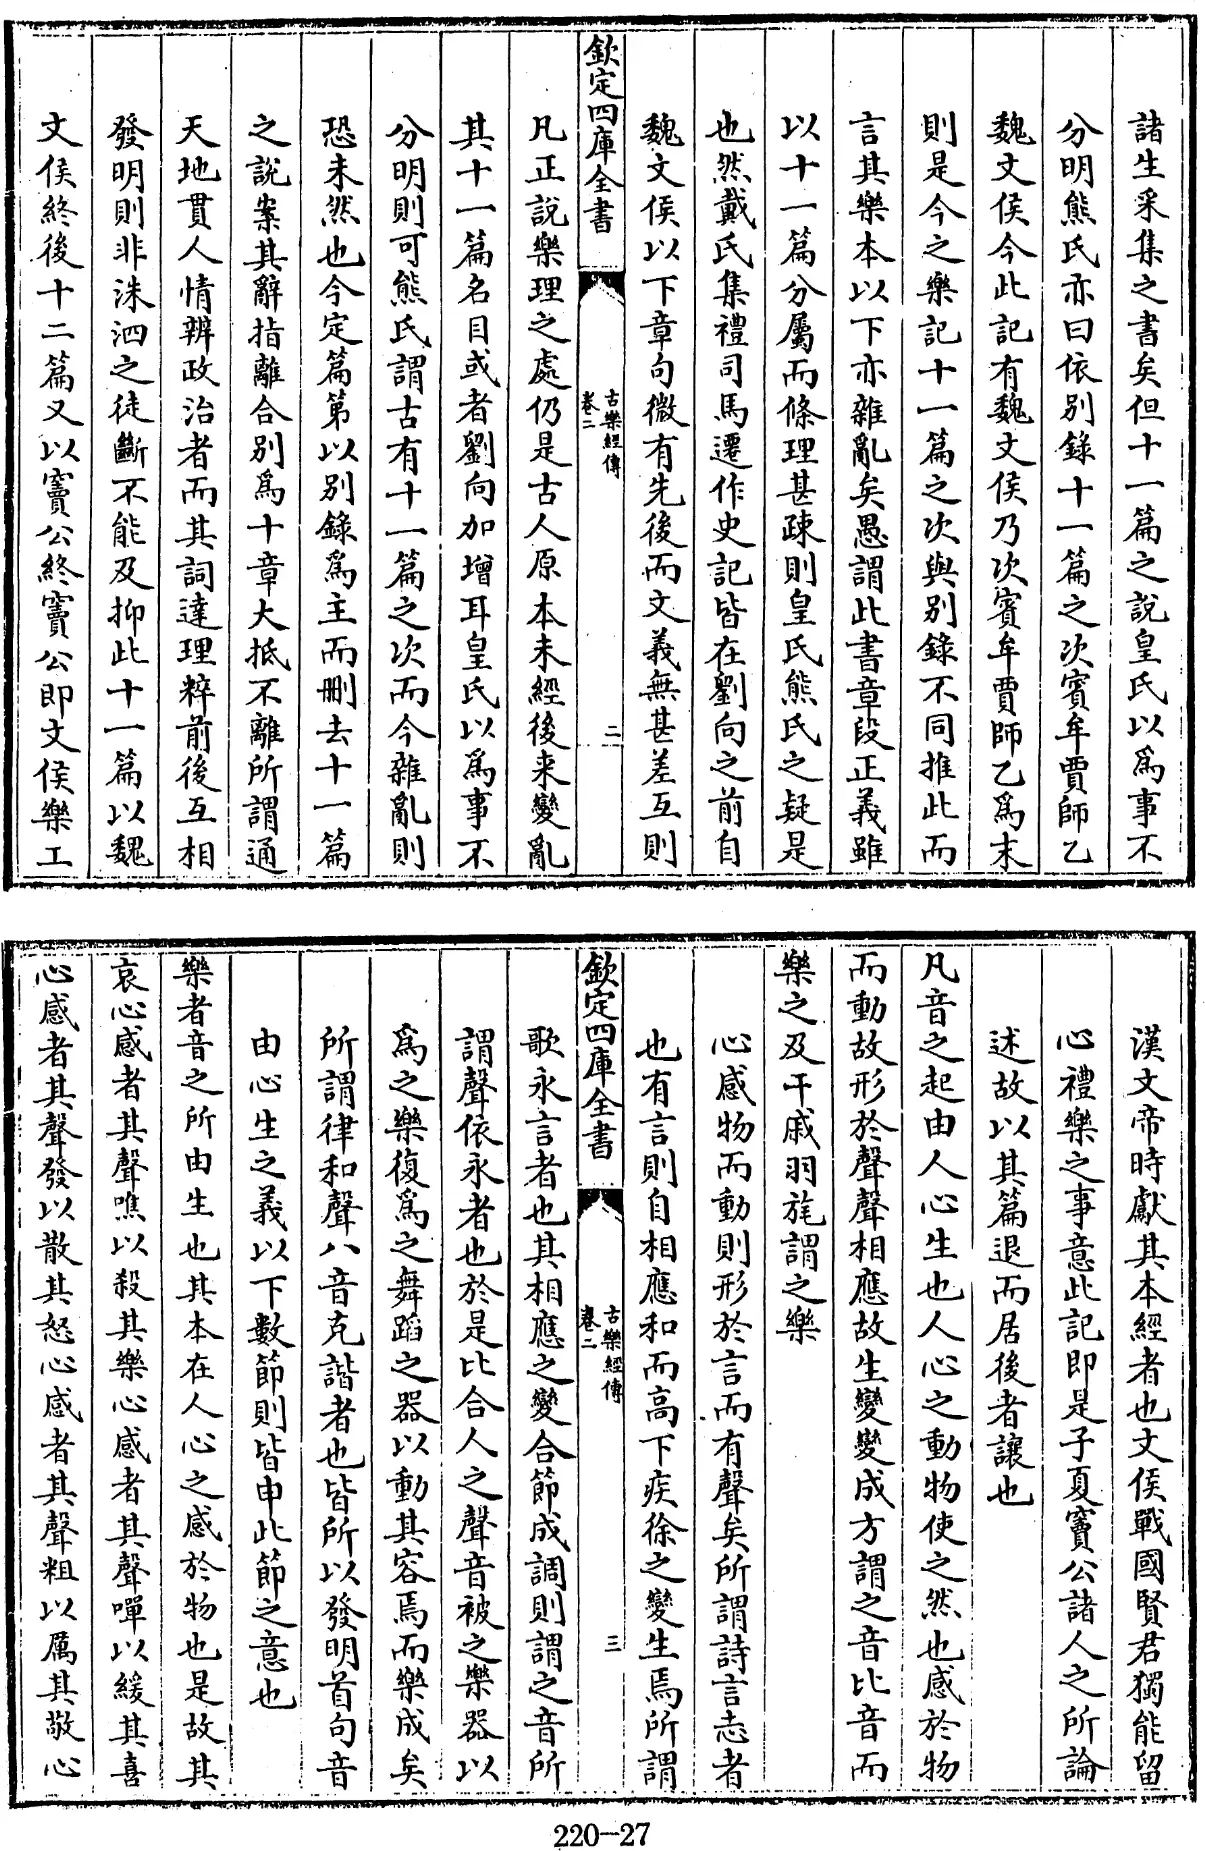 諸生采集之書矣但十一篇之說皇氏以為事不
分明熊氏亦曰依别錄十一篇之次賓牟賈師乙
魏文侯今此記有魏文侯乃次賓牟賈師乙為末
則是今之樂記十一篇之次與别錄不同推此而
言其樂本以下亦雜亂矣愚謂此書章段正義雖
以十一篇分屬而條理甚疎則皇氏熊氏之疑是
也然戴氏集禮司馬遷作史記皆在劉向之前自
魏文侯以下章句微有先後而文義無甚差互則
欽定四庫全書
古樂經傳
卷二
二
凡正說樂理之處仍是古人原本未經後来變亂
其十一篇名目或者劉向加增耳皇氏以為事不
分明則可熊氏謂古有十一篇之次而今雜亂則
恐未然也今定篇第以别錄為主而刪去十一篇
之說案其辭指離合别為十章大抵不離所謂通
天地貫人情辨政治者而其詞達理粹前後互相
發明則非洙泗之徒斷不能及抑此十一篇以魏
文侯終後十二篇又以竇公終竇公即文侯樂工
漢文帝時獻其本經者也文侯戰國賢君獨能留
心禮樂之事意此記即是子夏竇公諸人之所論
述故以其篇退而居後者讓也
凡音之起由人心生也人心之動物使之然也感於物
而動故形於聲聲相應故生變變成方謂之音比音而
樂之及干戚羽旄謂之樂
心感物而動則形於言而有聲矣所謂詩言志者
也有言則自相應和而高下疾徐之變生焉所謂
欽定四庫全書
古樂經傳
卷二
三
歌永言者也其相應之變合節成調則謂之音所
謂聲依永者也於是比合人之聲音被之樂器以
為之樂復為之舞蹈之器以動其容焉而樂成矣
所謂律和聲八音克諧者也皆所以發明首句音
由心生之義以下數節則皆申此節之意也
樂者音之所由生也其本在人心之感於物也是故其
哀心感者其聲噍以殺其樂心感者其聲嘽以緩其喜
心感者其聲發以散其怒心感者其聲粗以厲其敬心
220-27